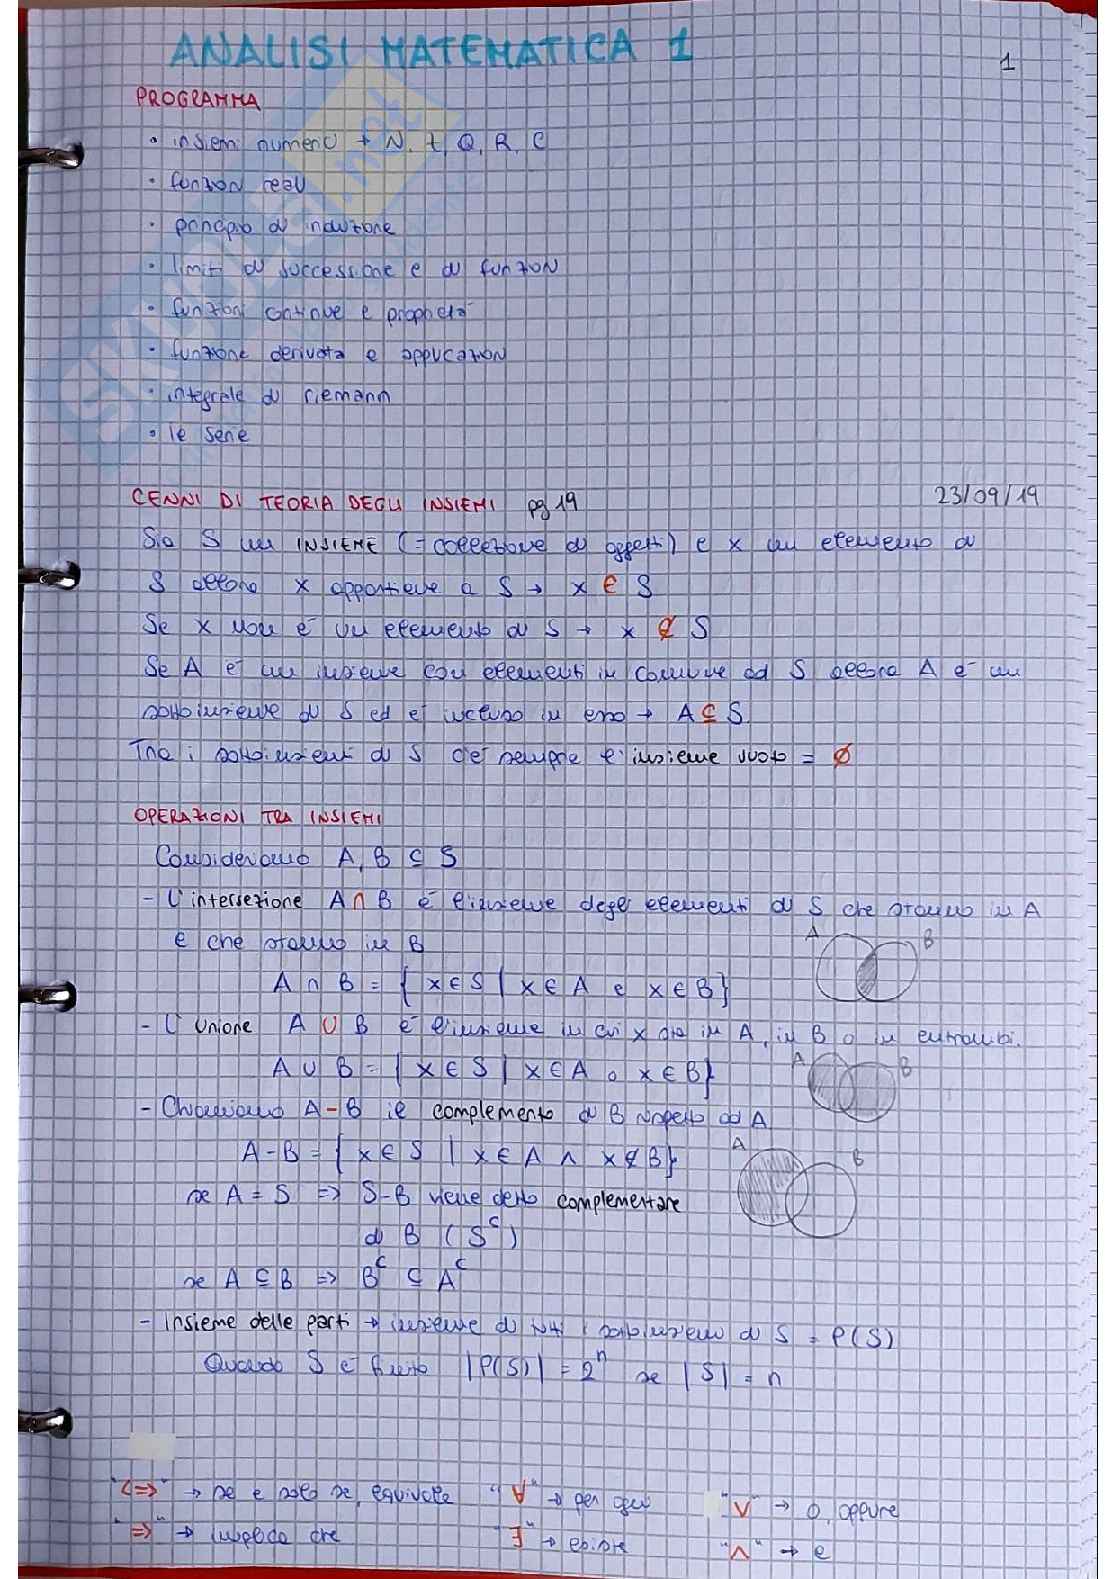 ANALISI MATEMATICA 1
1
PROGRAMMA
• insiemi numerici → N, Z, Q, R, C
• funzioni reali
• principio di induzione
• limiti di successione e di funzioni
• funzioni continue e proprietà
• funzione derivata e applicazioni
• integrale di riemann
• le serie
CENNI DI TEORIA DEGLI INSIEMI pg 19
23/09/19
Sia S un INSIEME (= collezione di oggetti) e x un elemento di
S allora x appartiene a S → x ∈ S
Se x non è un elemento di S → x ∉ S
Se A è un insieme con elementi in comune ad S allora A è un
sottoinsieme di S ed è incluso in esso → A ⊆ S
Tra i sottoinsiemi di S c'è sempre l'insieme vuoto = ∅
OPERAZIONI TRA INSIEMI
Consideriamo A, B ⊆ S
- L'intersezione A ∩ B è l'insieme degli elementi di S che stanno in A
e che stanno in B
A B
A ∩ B = { x ∈ S | x ∈ A e x ∈ B }
- L'unione A ∪ B è l'insieme in cui x sta in A, in B o in entrambi.
A ∪ B = { x ∈ S | x ∈ A o x ∈ B }
A B
- Chiamiamo A - B il complemento di B rispetto ad A
A B
A - B = { x ∈ S | x ∈ A ∧ x ∉ B }
se A = S => S - B viene detto complementare
di B (S^c)
se A ⊆ B => B^c ⊆ A^c
- insieme delle parti → insieme di tutti i sottoinsiemi di S = P(S)
Quando S è finito |P(S)| = 2^n se |S| = n
"<=>" → se e solo se, equivale "∀" → per ogni "∨" → o, oppure
"=>" → implica che "∃" → esiste "∧" → e